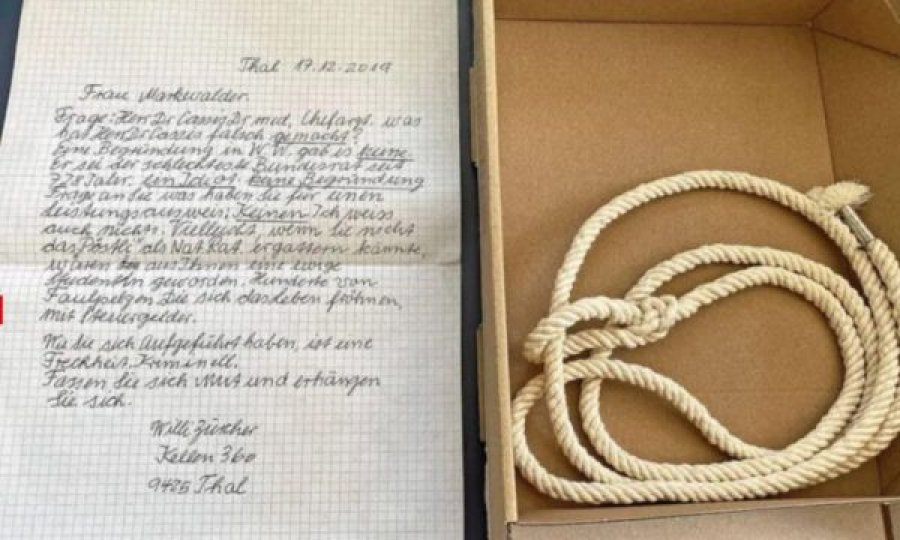 Thal 17.12.2019
Frau Markwalder.
Frage: Herr Dr Cassis Dr med, Chefarzt. was
hat Herr Dr Cassis falsch gemacht?
Eine Begründung in W.W. gab es keine
Er sei der schlechteste Bundesrat seit
Idiot. keine Begründung
Frage an Sie was haben Sie für einen
Leistungsausweis; Keinen Ich weiss
auch nichts. Vielleicht, wenn Sie nicht
das Pöstli als Nat Rat ergattern könnte,
wären aus Ihnen eine ewige
Studentin geworden. Hunderte von
Faulpelzen die sich das Leben fröhnen,
mit Steuergelder.
Wie Sie sich Aufgeführt haben, ist eine
Frechheit. Kriminell.
Fassen Sie sich Mut und erhängen
Sie sich.
Willi Zürcher
360
9425 Thal